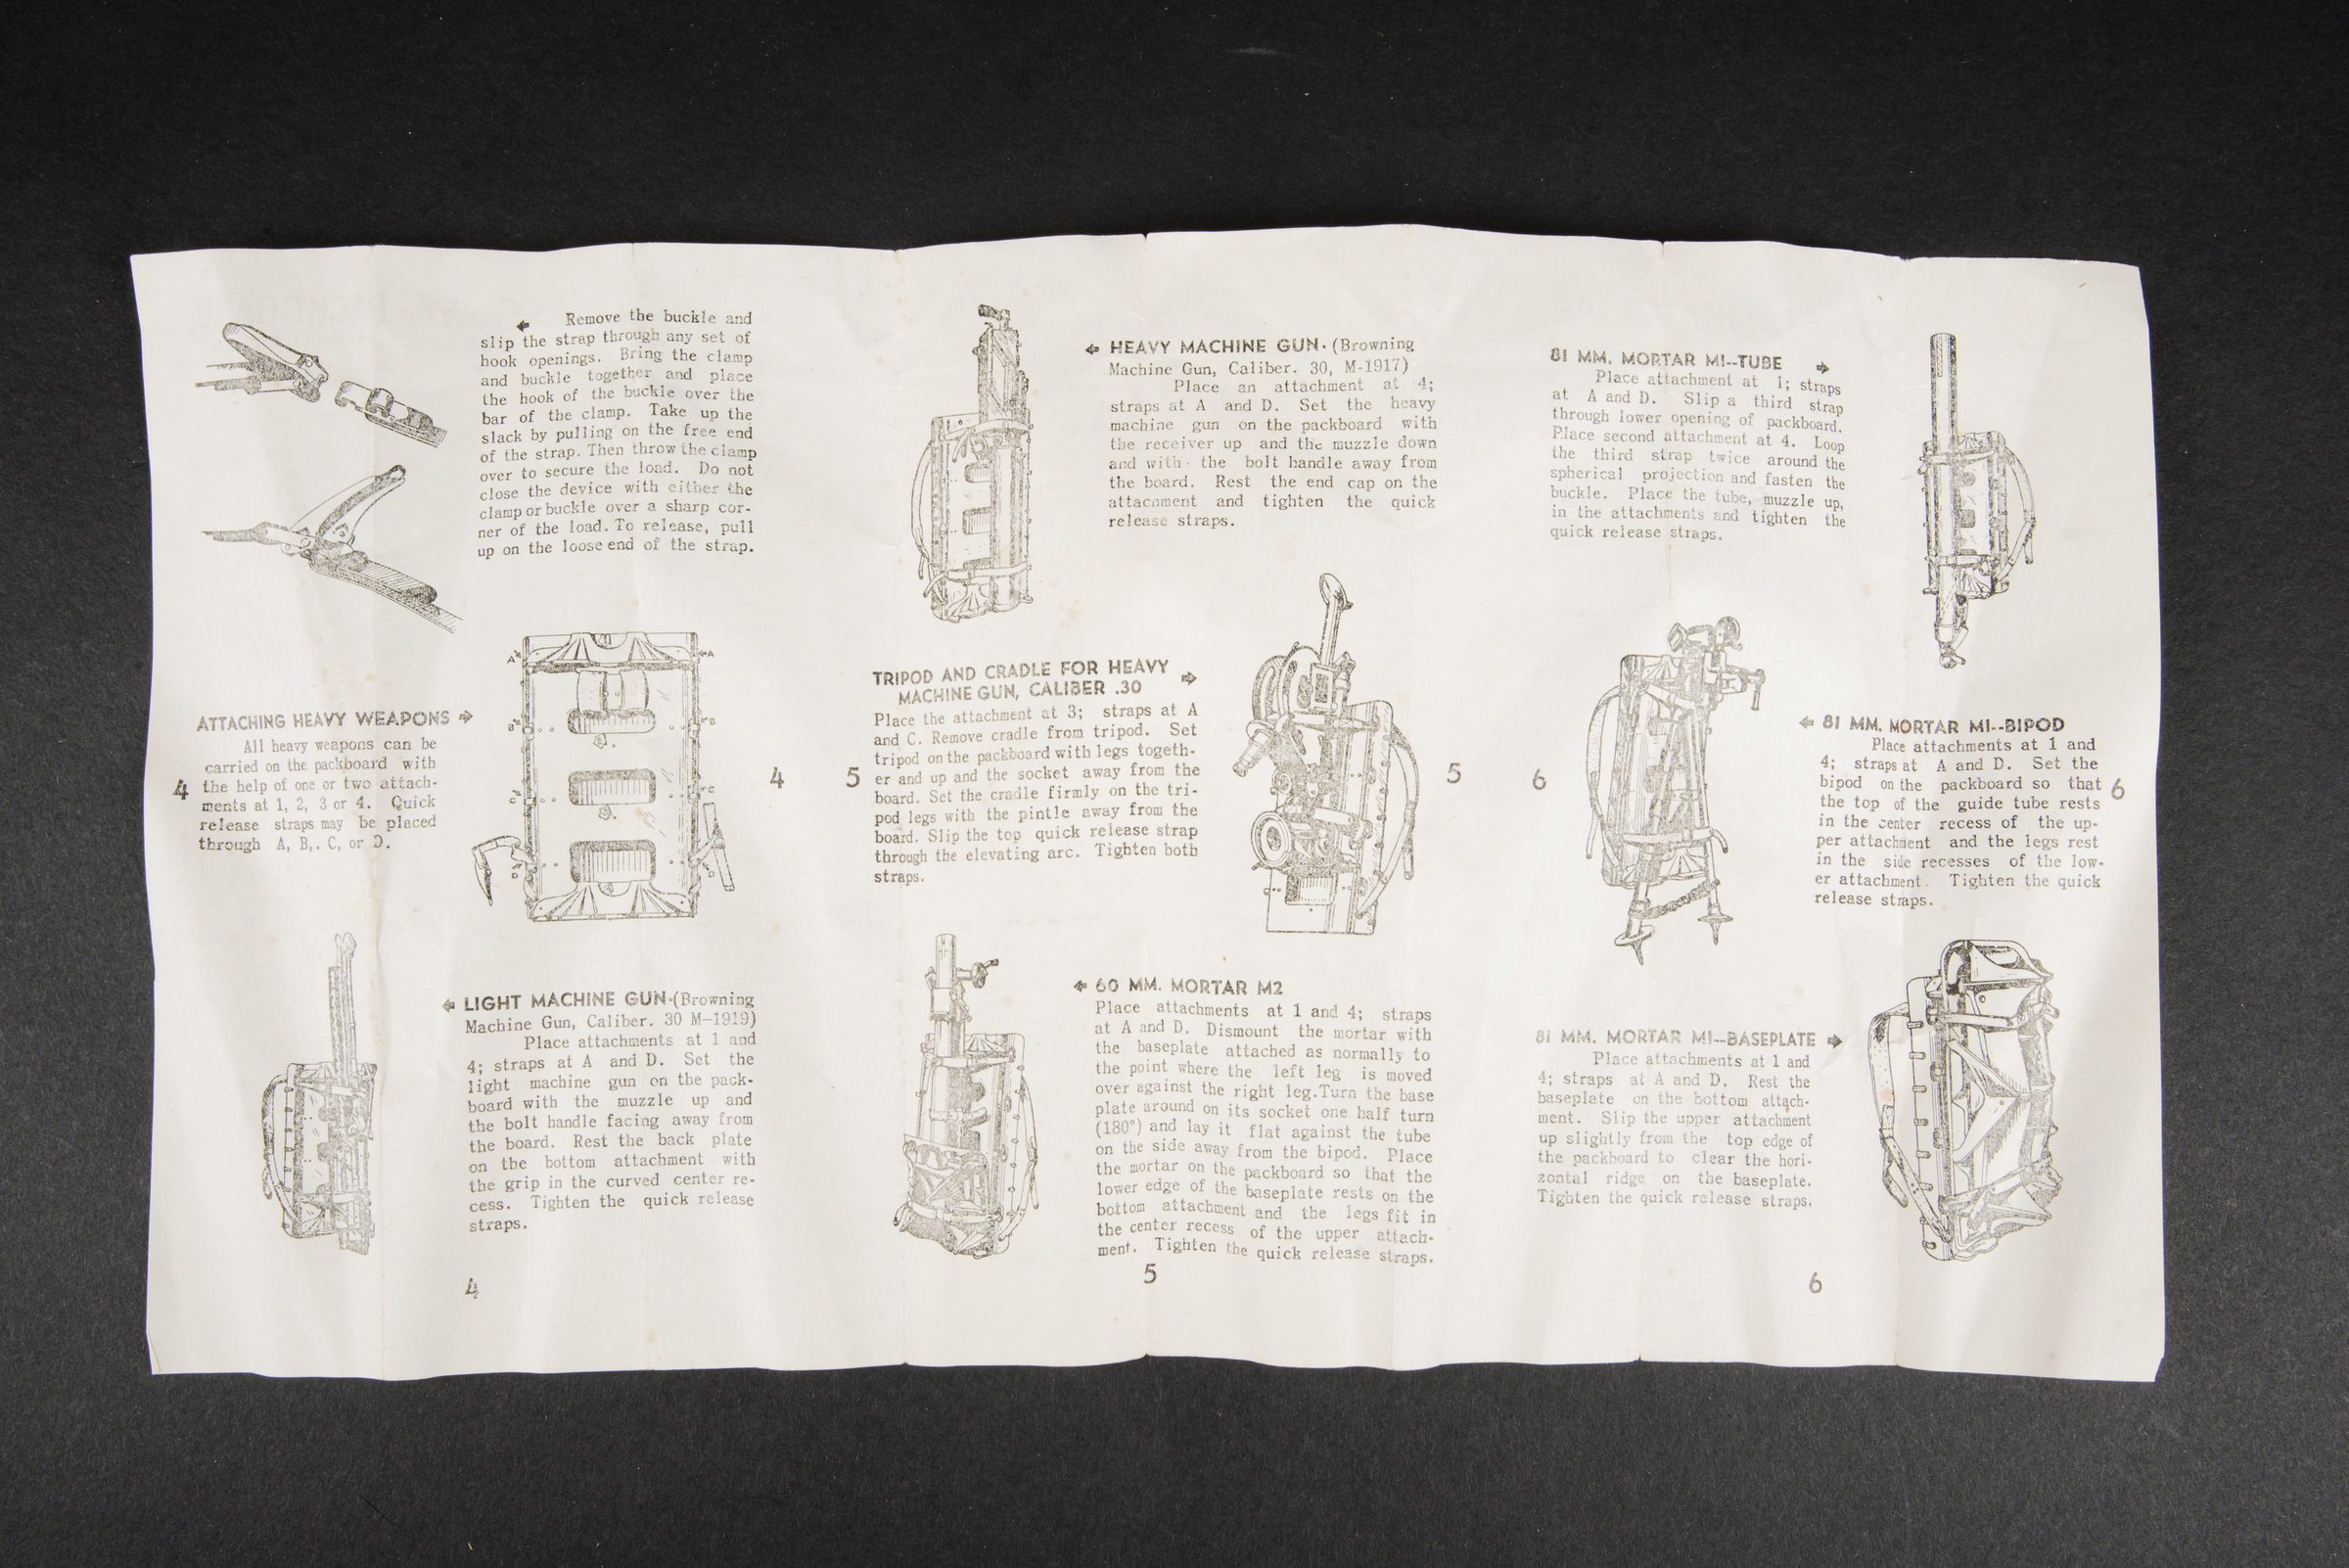 Remove the buckle and
slip the strap through any set of
hook openings. Bring the clamp
and buckle together and place
the hook of the buckle over the
bar of the clamp. Take up the
slack by pulling on the free end
of the strap. Then throw the clamp
over to secure the load. Do not
close the device with either the
clamp or buckle over a sharp cor-
ner of the load. To release, pull
up on the loose end of the strap.
ATTACHING HEAVY WEAPONS
All heavy weapons can be
carried on the packboard with
the help of one or two attach-
ments at 1, 2, 3 or 4. Quick
release straps may be placed
through A, B,. C, or D.
4
4
A
A
B
B
C
C
D
D
LIGHT MACHINE GUN-(Browning
Machine Gun, Caliber. 30 M-1919)
Place attachments at 1 and
4; straps at A and D. Set the
light machine gun on the pack-
board with the muzzle up and
the bolt handle facing away from
the board. Rest the back plate
on the bottom attachment with
the grip in the curved center re-
cess. Tighten the quick release
straps.
4
HEAVY MACHINE GUN. (Browning
Machine Gun, Caliber. 30, M-1917)
Place an attachment at 4;
straps at A and D. Set the heavy
machine gun on the packboard with
the receiver up and the muzzle down
and with the bolt handle away from
the board. Rest the end cap on the
attacnment and tighten the quick
release straps.
TRIPOD AND CRADLE FOR HEAVY
MACHINE GUN, CALIBER .30
Place the attachment at 3; straps at A
and C. Remove cradle from tripod. Set
tripod on the packboard with legs togeth-
er and up and the socket away from the
board. Set the cradle firmly on the tri-
pod legs with the pintle away from the
board. Slip the top quick release strap
through the elevating arc. Tighten both
straps.
5
5
60 MM. MORTAR M2
Place attachments at 1 and 4; straps
at A and D. Dismount the mortar with
the baseplate attached as normally to
the point where the left leg is moved
over against the right leg.Turn the base
plate around on its socket one half turn
(180°) and lay it flat against the tube
on the side away from the bipod. Place
the mortar on the packboard so that the
lower edge of the baseplate rests on the
bottom attachment and the legs fit in
the center recess of the upper attach-
ment. Tighten the quick release straps.
5
81 MM. MORTAR M1--TUBE
Place attachment at 1; straps
at A and D. Slip a third strap
through lower opening of packboard.
Place second attachment at 4. Loop
the third strap twice around the
spherical projection and fasten the
buckle. Place the tube, muzzle up,
in the attachments and tighten the
quick release straps.
81 MM. MORTAR M1--BIPOD
Place attachments at 1 and
4; straps at A and D. Set the
bipod on the packboard so that
the top of the guide tube rests
in the center recess of the up-
per attachment and the legs rest
in the side recesses of the low-
er attachment. Tighten the quick
release straps.
6
6
81 MM. MORTAR M1--BASEPLATE
Place attachments at 1 and
4; straps at A and D. Rest the
baseplate on the bottom attach-
ment. Slip the upper attachment
up slightly from the top edge of
the packboard to clear the hori-
zontal ridge on the baseplate.
Tighten the quick release straps.
6